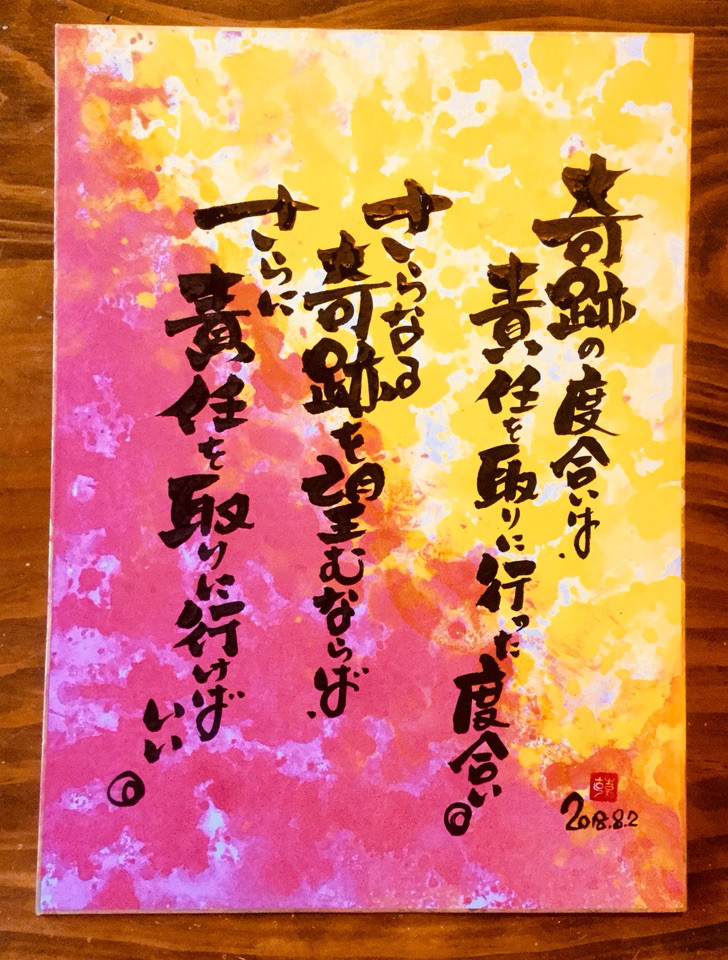 奇跡の度合いは、
責任を取りに行った
度合い。
さらなる
奇跡を望むならば、
さらに
責任を取りに行けば
いい。
2018.8.2